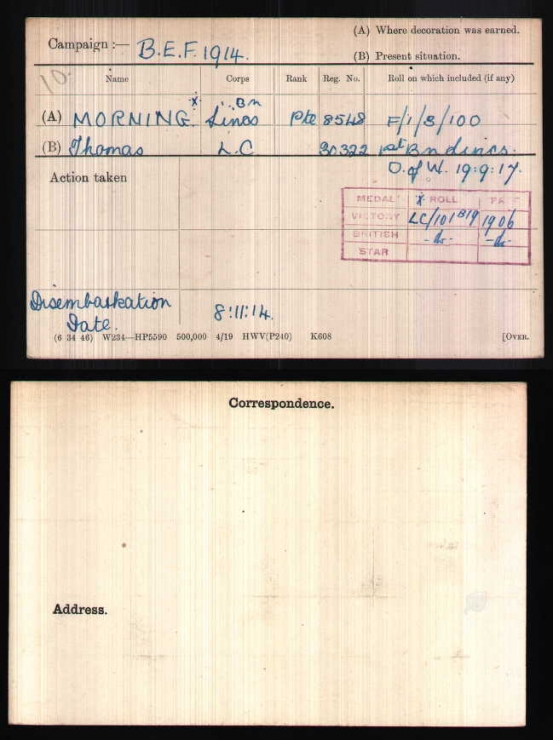 (A) Where decoration was earned.
Campaign :— B.E.F. 1914.
(B) Present situation.
10.
Name Corps Rank Reg. No. Roll on which included (if any)
(A) MORNING. x 1. Bn Lincs Pte 8548 F/1/8/100
(B) Thomas L.C. 30322 1st Bn Lincs.
Action taken D. of W. 19.9.17.
MEDAL x ROLL PAGE
VICTORY LC/101B19 1906
BRITISH -do- -do-
STAR
Disembarkation
Date. 8.11.14.
(6 34 46) W234—HP5590 500,000 4/19 HWV(P240) K608 [OVER.
Correspondence.
Address.